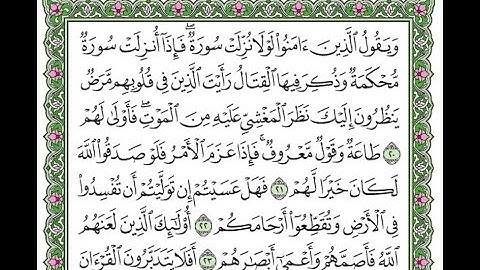 وَيَقُولُ ٱلَّذِينَ ءَامَنُوا۟ لَوْلَا نُزِّلَتْ سُورَةٌ ۖ فَإِذَآ أُنزِلَتْ سُورَةٌ
مُّحْكَمَةٌ وَذُكِرَ فِيهَا ٱلْقِتَالُ رَأَيْتَ ٱلَّذِينَ فِى قُلُوبِهِم مَّرَضٌ
يَنظُرُونَ إِلَيْكَ نَظَرَ ٱلْمَغْشِىِّ عَلَيْهِ مِنَ ٱلْمَوْتِ ۖ فَأَوْلَىٰ لَهُمْ
٢٠ طَاعَةٌ وَقَوْلٌ مَّعْرُوفٌ ۚ فَإِذَا عَزَمَ ٱلْأَمْرُ فَلَوْ صَدَقُوا۟ ٱللَّهَ
لَكَانَ خَيْرًا لَّهُمْ ٢١ فَهَلْ عَسَيْتُمْ إِن تَوَلَّيْتُمْ أَن تُفْسِدُوا۟
فِى ٱلْأَرْضِ وَتُقَطِّعُوٓا۟ أَرْحَامَكُمْ ٢٢ أُو۟لَٰٓئِكَ ٱلَّذِينَ لَعَنَهُمُ
ٱللَّهُ فَأَصَمَّهُمْ وَأَعْمَىٰٓ أَبْصَٰرَهُمْ ٢٣ أَفَلَا يَتَدَبَّرُونَ ٱلْقُرْءَانَ